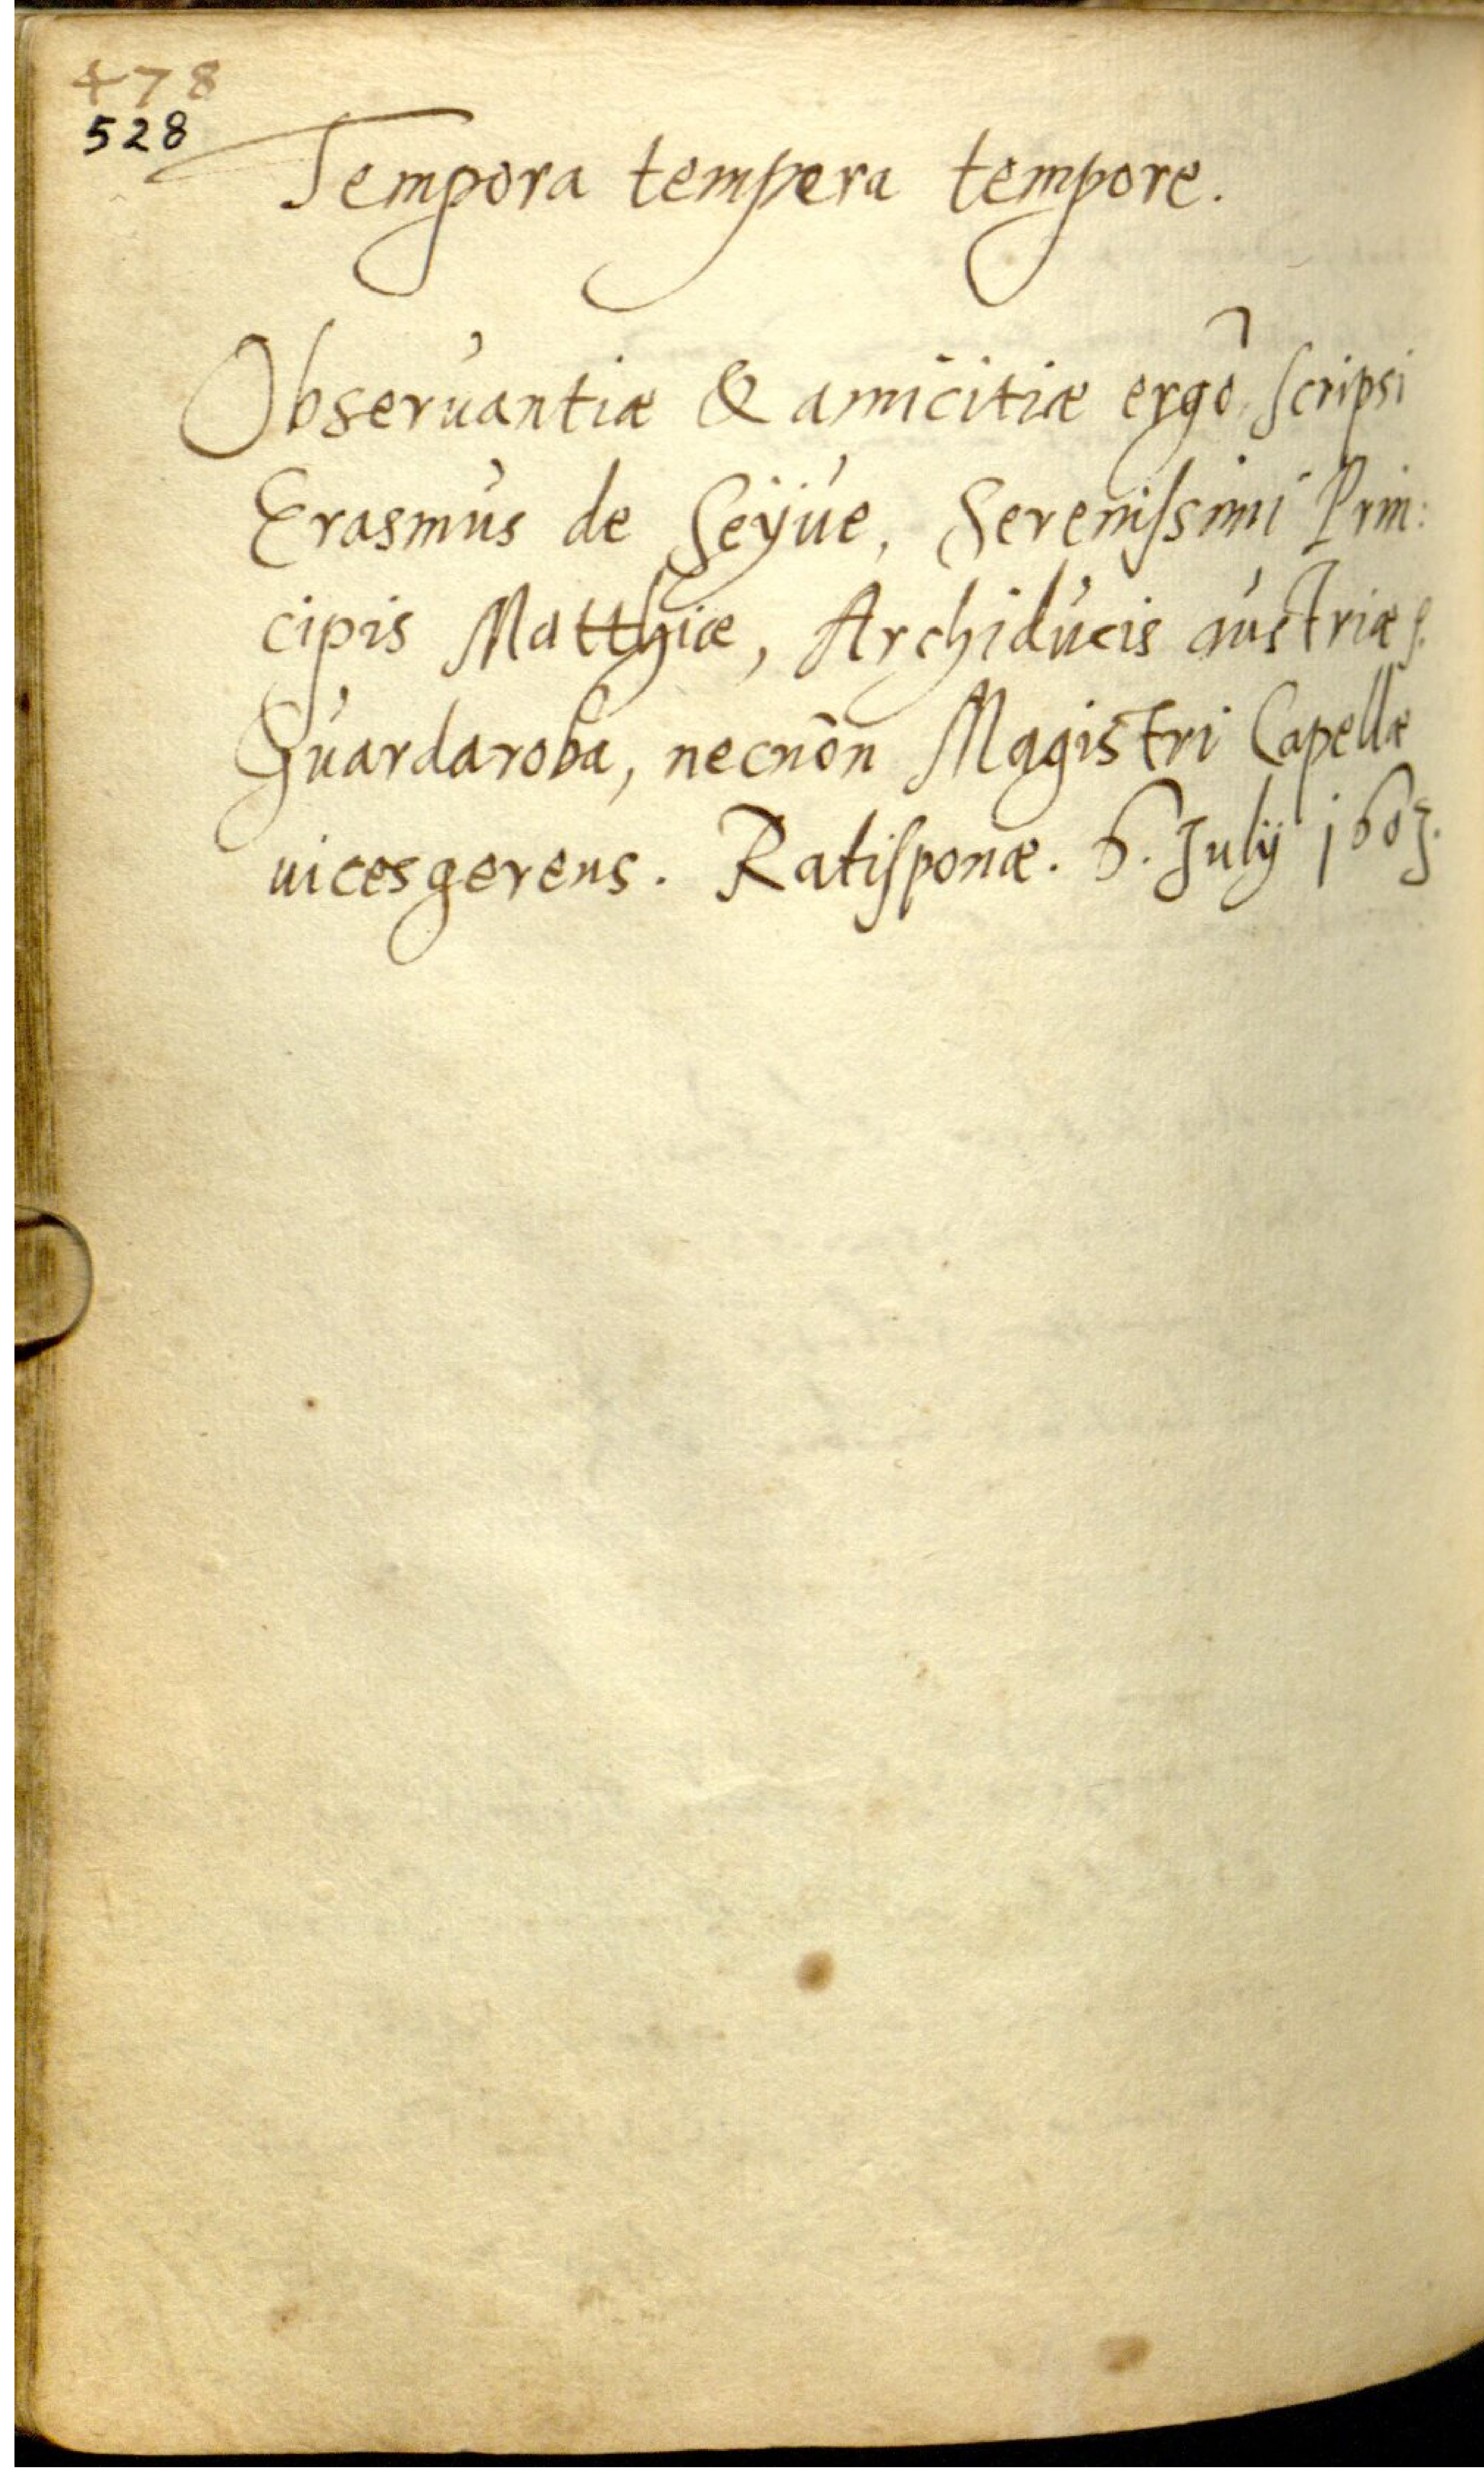 478
528
Tempora tempera tempore.
Obseruantiæ & amicitiæ ergò scripsi
Erasmus de Seÿue, Serenissimi Prin:
cipis Matthiæ, Archiducis austriæ
Guardaroba, necnon Magistri Capellæ
uicesgerens. Ratisponæ. 6. Julÿ 1603.